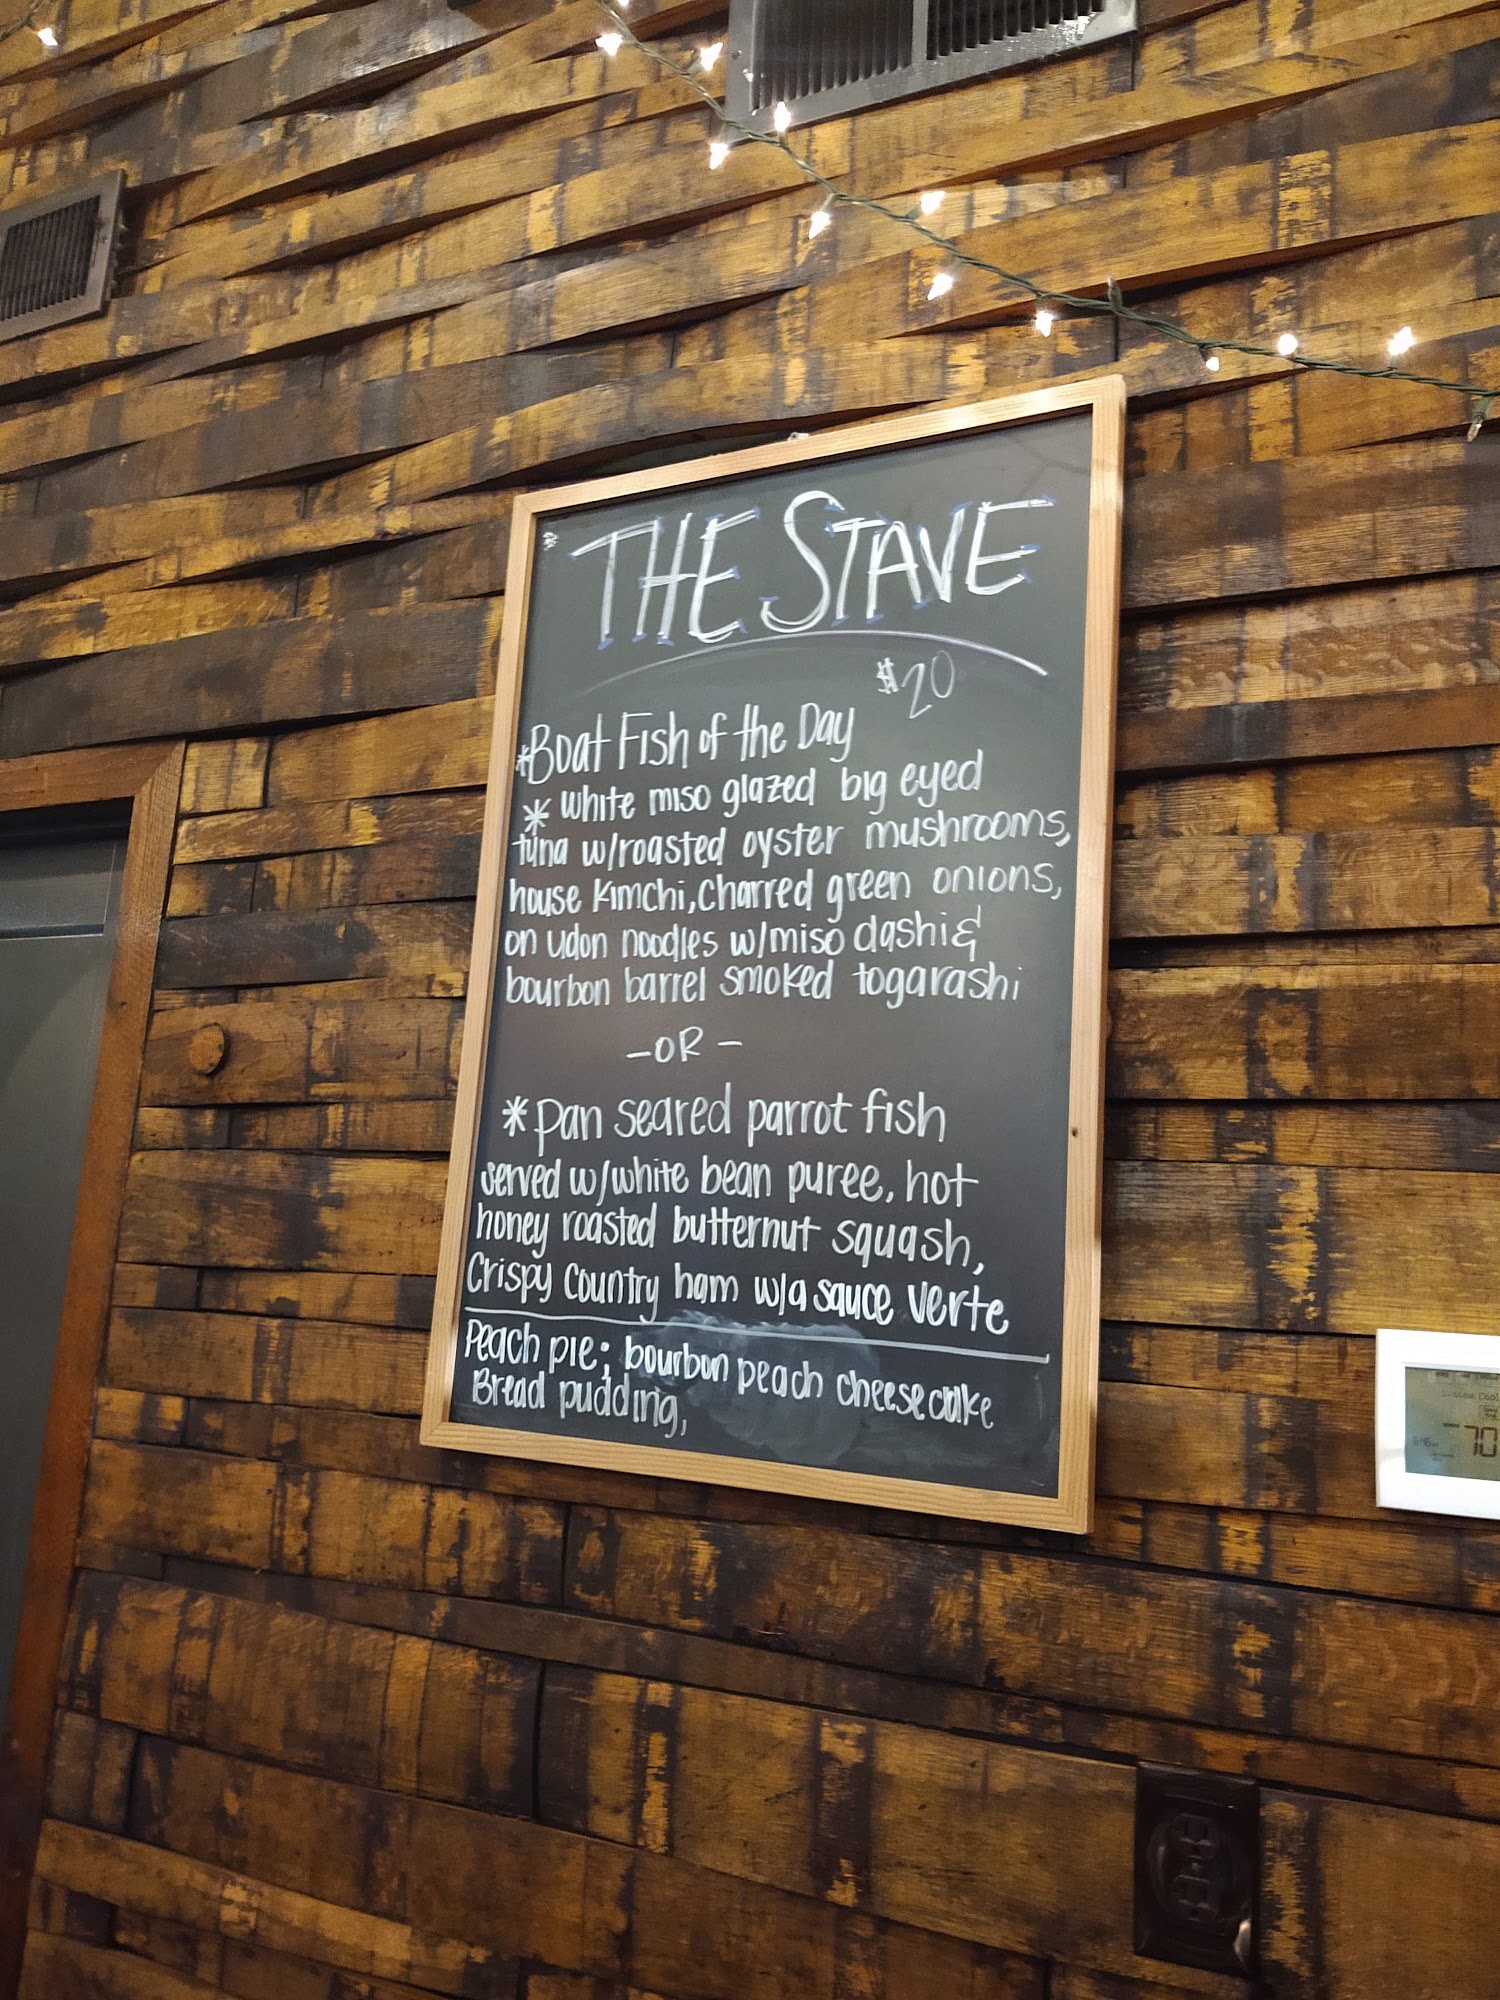 THE STAVE
$20
*Boat Fish of the Day
* White miso glazed big eyed
tuna w/roasted oyster mushrooms,
house kimchi, charred green onions,
on udon noodles w/miso dashi &
bourbon barrel smoked togarashi
-OR-
* pan seared parrot fish
served w/white bean puree, hot
honey roasted butternut squash,
Crispy Country ham w/a sauce verte
Peach pie; bourbon peach cheesecake
Bread pudding,
70